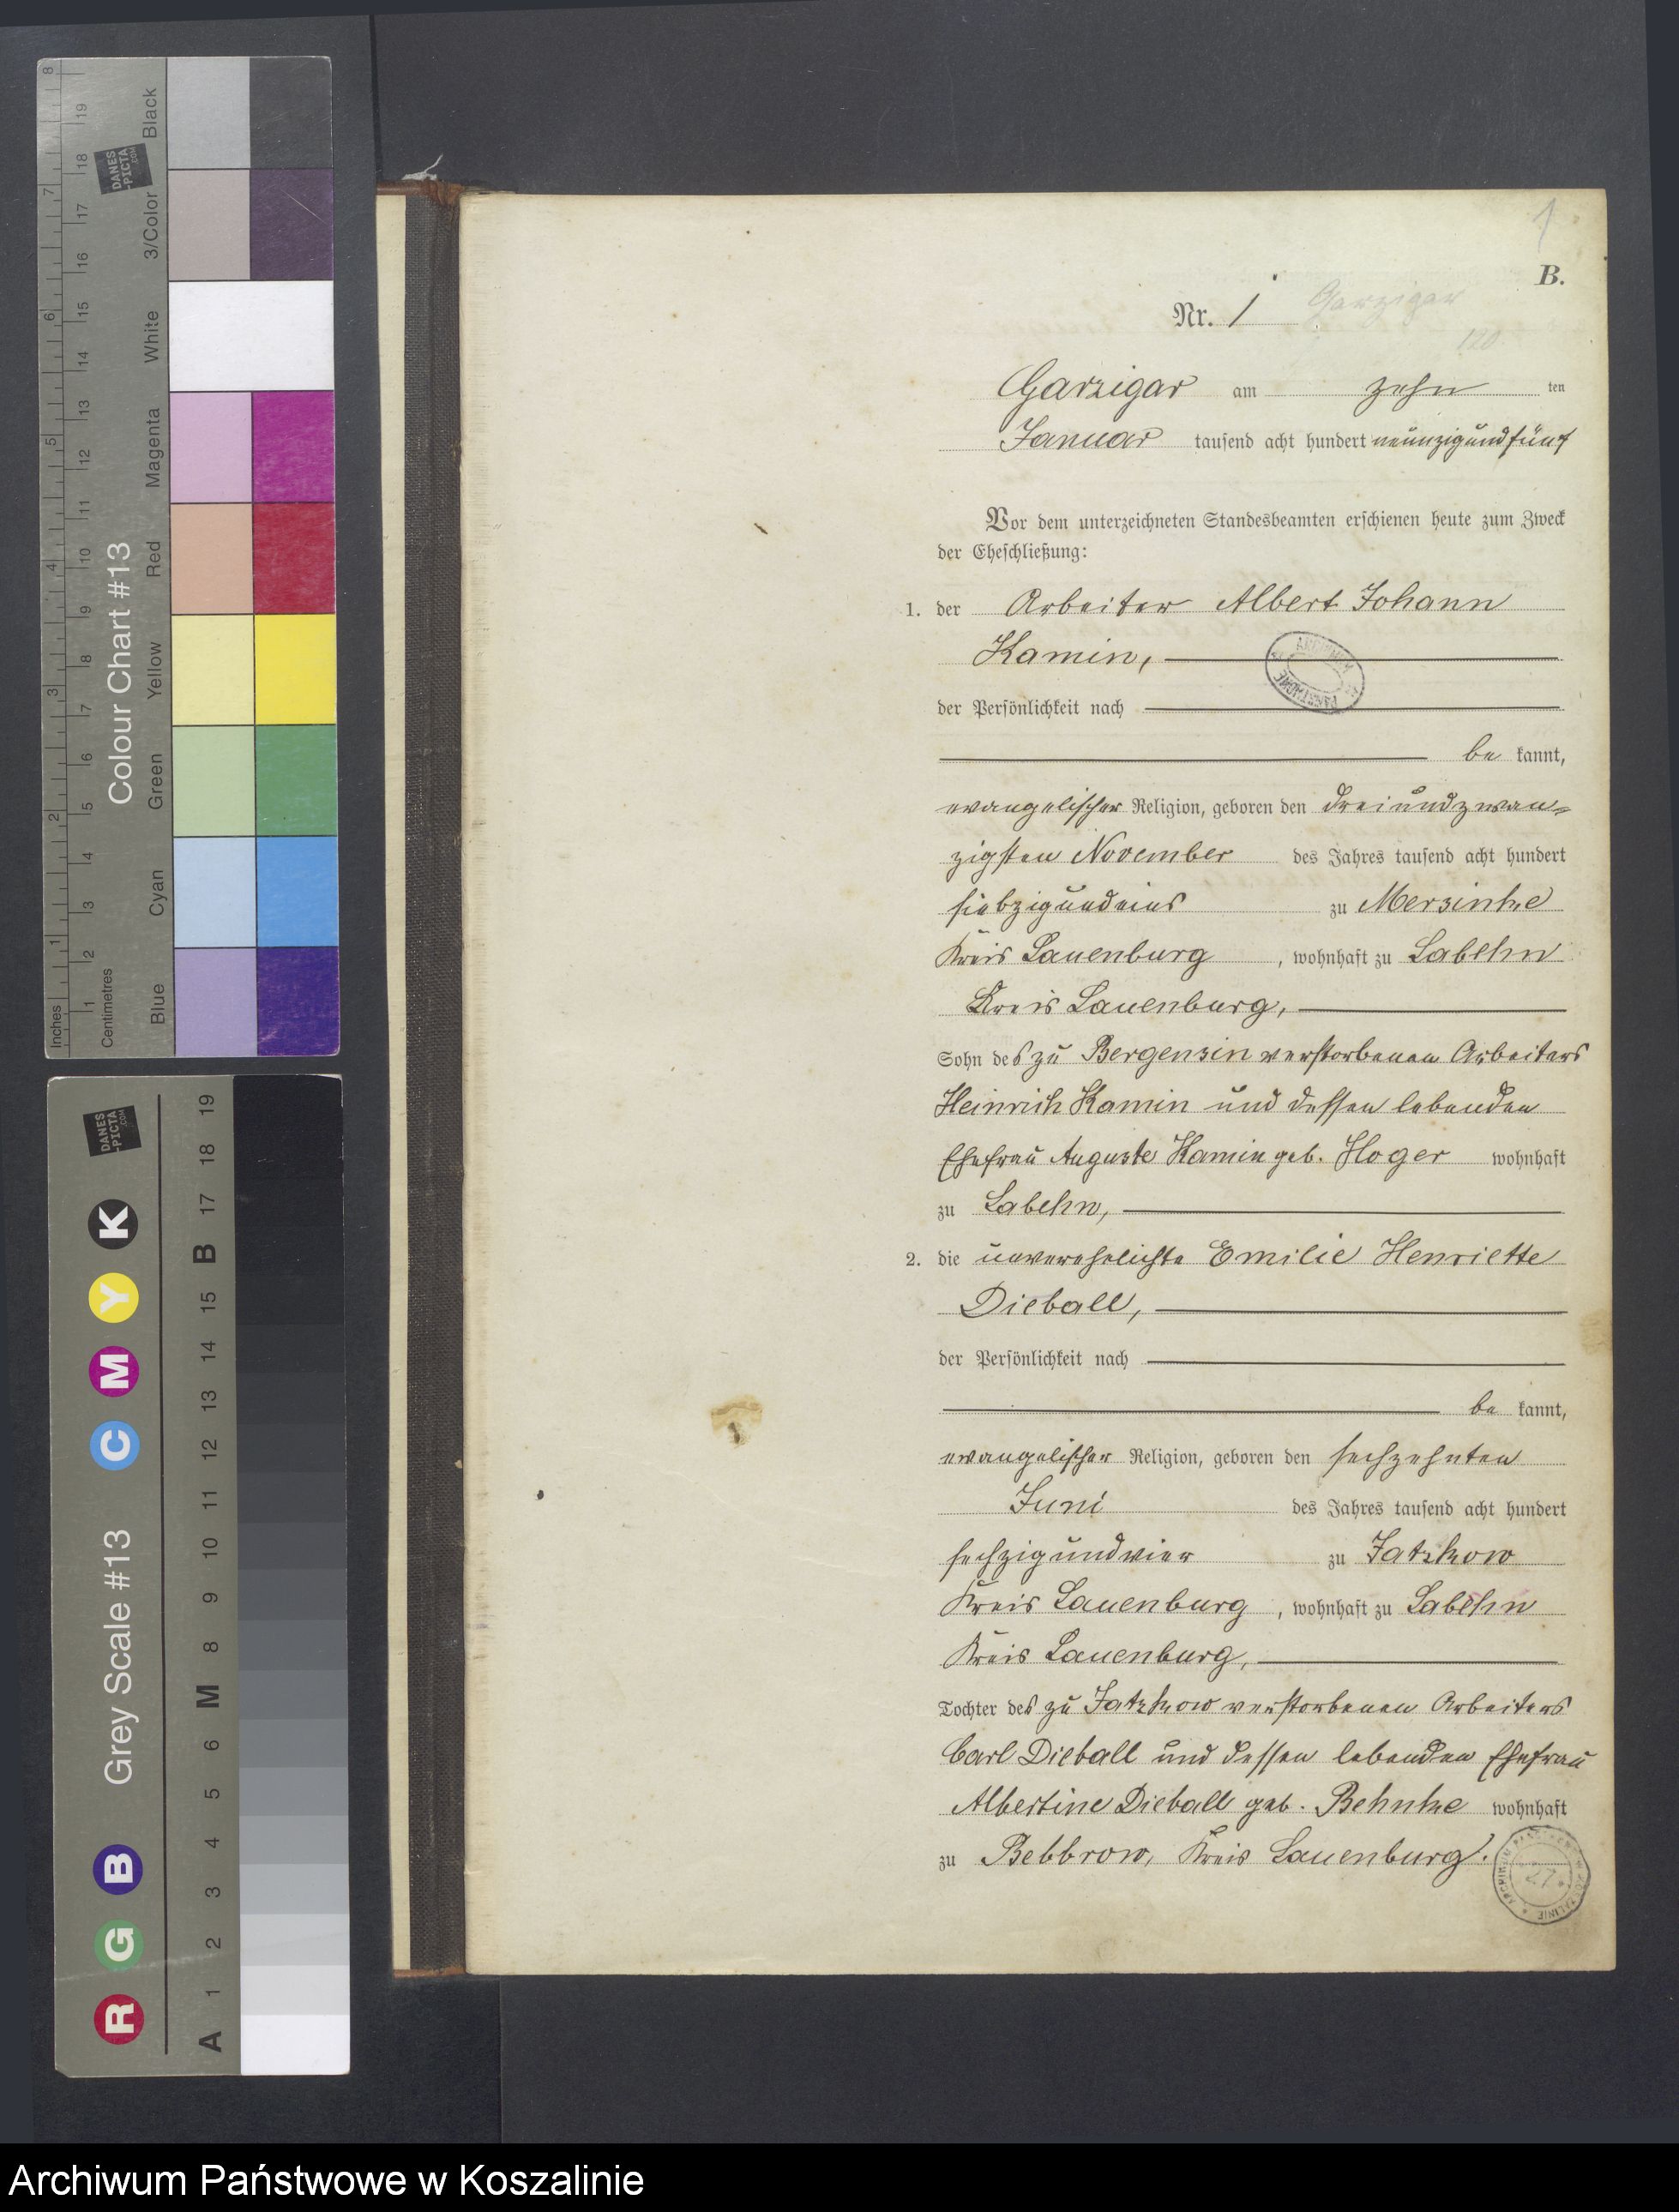 1
B.
Nr. 1 Garzigar
120
Garzigar am zehn ten
Januar tausend acht hundert neunzigundfünf
Vor dem unterzeichneten Standesbeamten erschienen heute zum Zweck
der Eheschließung:
1. der Arbeiter Albert Johann
Kamin,
der Persönlichkeit nach
be kannt,
evangelischer Religion, geboren den dreiundzwan-
zigsten November des Jahres tausend acht hundert
siebzigundeins zu Mersinke
Kreis Lauenburg, wohnhaft zu Labehn
Kreis Lauenburg,
Sohn des zu Bergensin verstorbenen Arbeiters
Heinrich Kamin und dessen lebenden
Ehefrau Auguste Kamin geb. Hoger wohnhaft
zu Labehn,
2. die unverehelichte Emilie Henriette
Dieball,
der Persönlichkeit nach
be kannt,
evangelischer Religion, geboren den sechzehnten
Juni des Jahres tausend acht hundert
sechzigundvier zu Jatzkow
Kreis Lauenburg, wohnhaft zu Labehn
Kreis Lauenburg,
Tochter des zu Jatzkow verstorbenen Arbeiters
Carl Dieball und dessen lebenden Ehefrau
Albertine Dieball geb. Behnke wohnhaft
zu Bebbrow, Kreis Lauenburg.
ARCHIWUM PAŃSTWOWE
27
Colour Chart #13
Inches 1 2 3 4 5 6 7 8
Centimetres 1 2 3 4 5 6 7 8 9 10 11 12 13 14 15 16 17 18 19
Blue Cyan Green Yellow Red Magenta White 3/Color Black
DANES
-PICTA
.COM
Grey Scale #13
R G B C M Y K
A 1 2 3 4 5 6 M 8 9 10 11 12 13 14 15 B 17 18 19
DANES
-PICTA
.COM
Archiwum Państwowe w Koszalinie